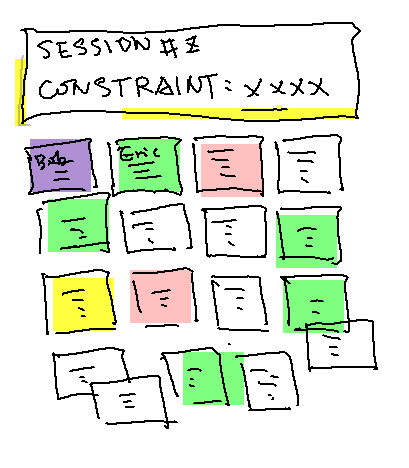 SESSION #2
CONSTRAINT: XXXX
Bob
Eric